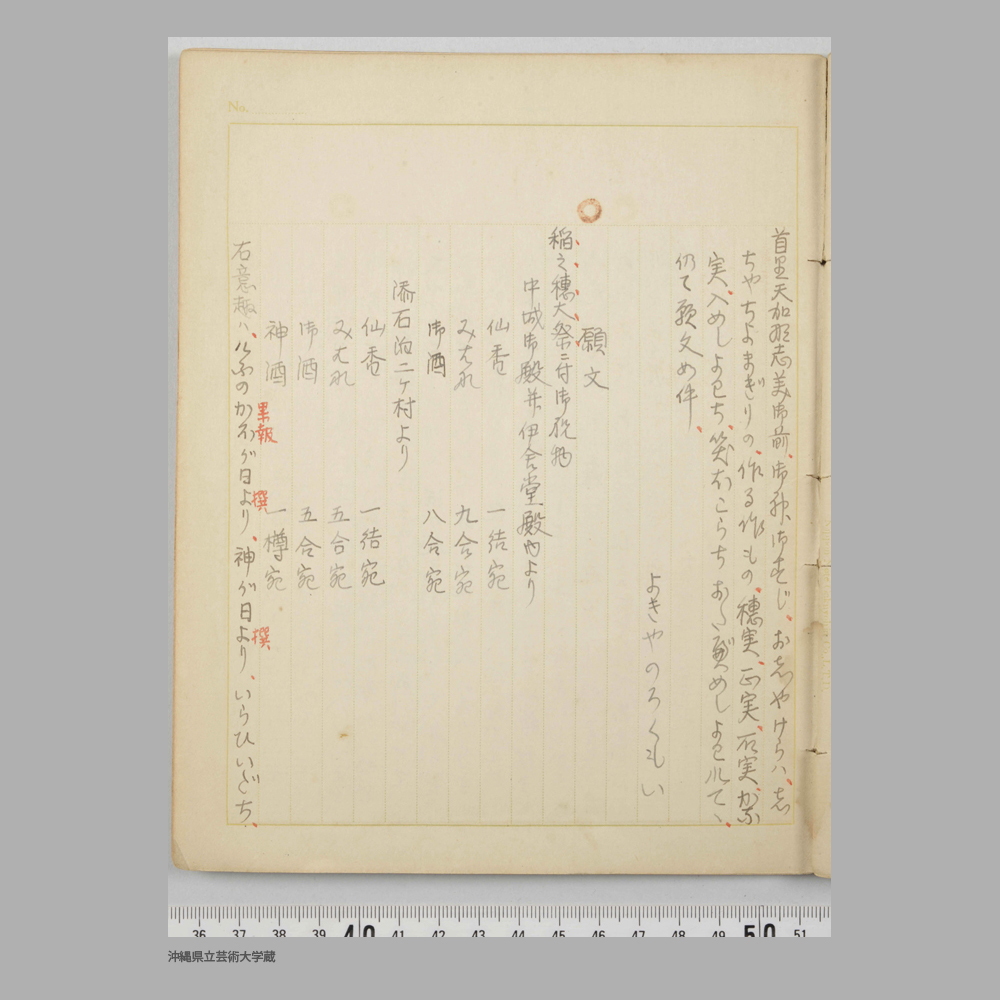 首里天加那志美御前、御歌御すじ、お志やけらハ、志
ちやちよまぎりの、作る作もの、穂実、正実、石実、かな
実、入めしよわち、笑おこらち お
仍て願文め件、
よきやのろくもい
願文
稲之穂大祭ニ付御祝物
中城御殿并伊舎堂殿内より
仙香 一結宛
みはな 九合宛
御酒 八合宛
添石泊二ケ村より
仙香 一結宛
みはな 五合宛
御酒 五合宛
神酒 一樽宛
右意趣ハ、のかほが日より、神が日より、いらひいぢち、
果報
撰
撰
No.
36 37 38 39 40 41 42 43 44 45 46 47 48 49 50 51
沖縄県立芸術大学蔵